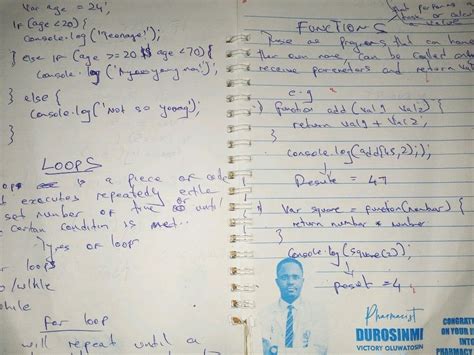 Var age = 24;
if (age <20) {
console.log ('Teenage');
} else if (age >= 20 && age <70) {
console.log ('A young man');
} else {
console.log ('Not so young');
LOOPS
is a piece of code
executes repeatedly either
set number of time or until
certain condition is met.
Types of loop
loops
while
For loop
will repeat until a
FUNCTIONS
These are programs that can have
their own name, can be called
receive parameters and return
e.g
function add (val1, val2) {
return val1 + val2;
console.log(add(45,2););
Result = 47
Var square = function(number) {
return number * number
console.log (square(2));
result = 4
Pharmacist
DUROSINMI
VICTORY OLUWATOSIN
CONGRAT
ON YOUR
IN
PHARMACY